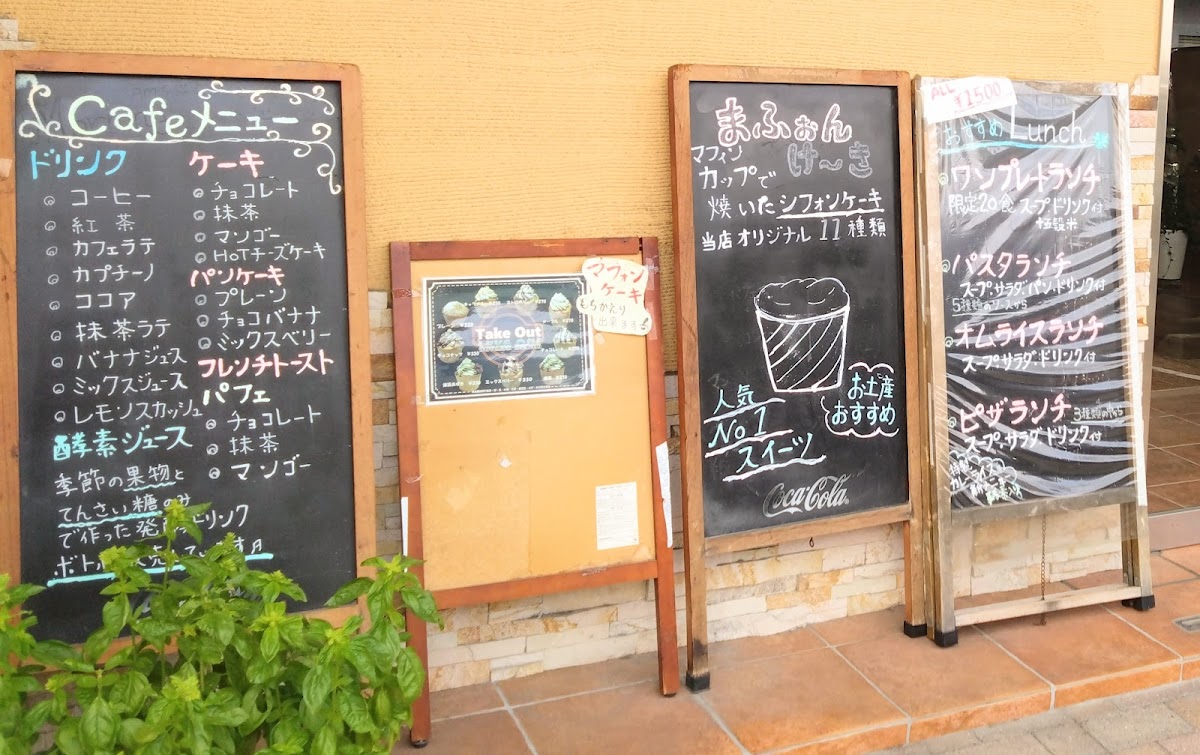 Cafeメニュー
ドリンク
コーヒー
紅茶
カフェラテ
カプチーノ
ココア
抹茶ラテ
バナナジュース
ミックスジュース
レモンスカッシュ
酵素ジュース
季節の果物と
てんさい糖のみ
で作った発酵ドリンク
ケーキ
チョコレート
抹茶
マンゴー
HOTチーズケーキ
パンケーキ
プレーン
チョコバナナ
ミックスベリー
フレンチトースト
パフェ
チョコレート
抹茶
マンゴー
マフィン
ケーキ
もちかえり
出来ます
Take Out
まふぉん
け〜き
マフィン
カップで
焼いたシフォンケーキ
当店オリジナル 11種類
人気
No1
スイーツ
お土産
おすすめ
Coca-Cola
ALL
¥1500
おすすめ Lunch
ワンプレートランチ
限定20食 スープドリンク付
十五穀米
パスタランチ
スープ、サラダ、パン、ドリンク付
5種類のソースから
オムライスランチ
スープ、サラダ、ドリンク付
ピザランチ
スープ、サラダ、ドリンク付